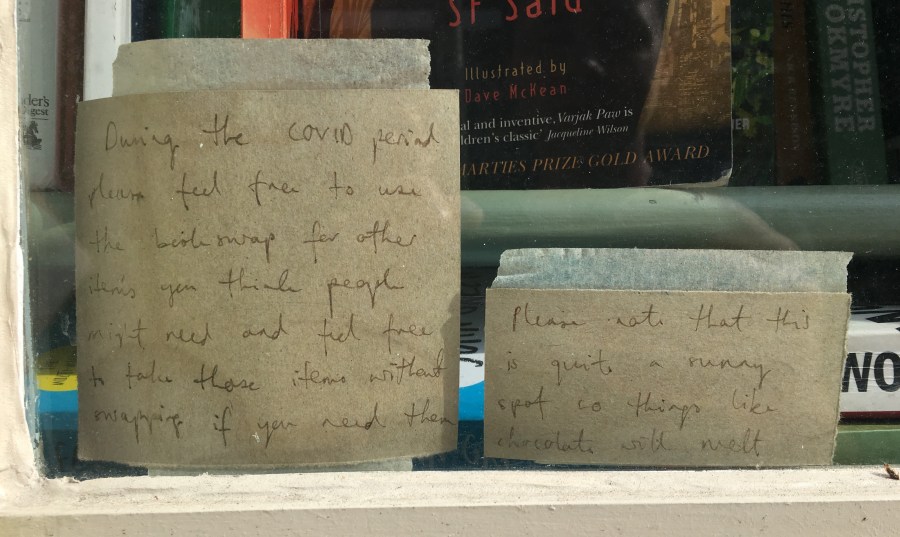 SF Said
Illustrated by
Dave McKean
al and inventive, Varjak Paw is
ldren's classic' Jacqueline Wilson
MARTIES PRIZE GOLD AWARD
der's
gest
STOPHER
OKMYRE
During the COVID period
please feel free to use
the book swap for other
items you think people
might need and feel free
to take those items without
swapping if you need them
Please note that this
is quite a sunny
spot so things like
chocolate will melt
WO